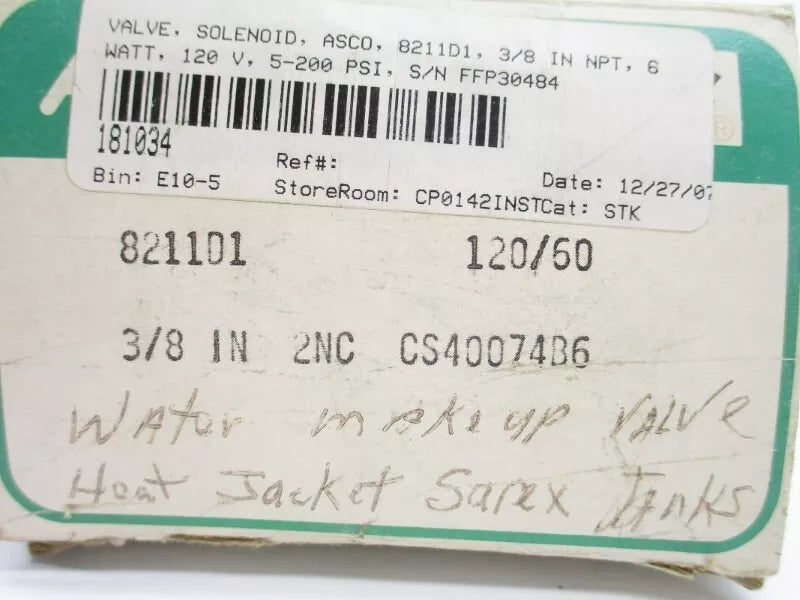 VALVE, SOLENOID, ASCO, 8211D1, 3/8 IN NPT, 6
WATT, 120 V, 5-200 PSI, S/N FFP30484
181034
Ref#:
Date: 12/27/07
Bin: E10-5
StoreRoom: CP0142INSTCat: STK
®
8211D1 120/60
3/8 IN 2NC CS40074B6
Water makeup VALVe
Heat Jacket Sarex Tanks